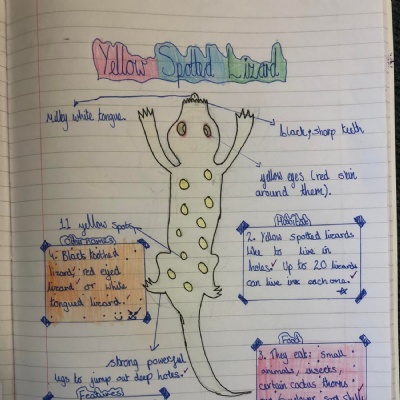 Yellow Spotted Lizard
milky white tongue
black, sharp teeth
yellow eyes (red skin
around them).
11 yellow spots
Habitat
2. Yellow spotted lizards
like to live in
holes. Up to 20 lizards
can live in each one.
Other names
4. Black toothed
lizard, red eyed
lizard or white
tongued lizard.
strong powerful
legs to jump out deep holes.
Food
3. They eat: small
animals, insects,
certain cactus thorns
shells
Features